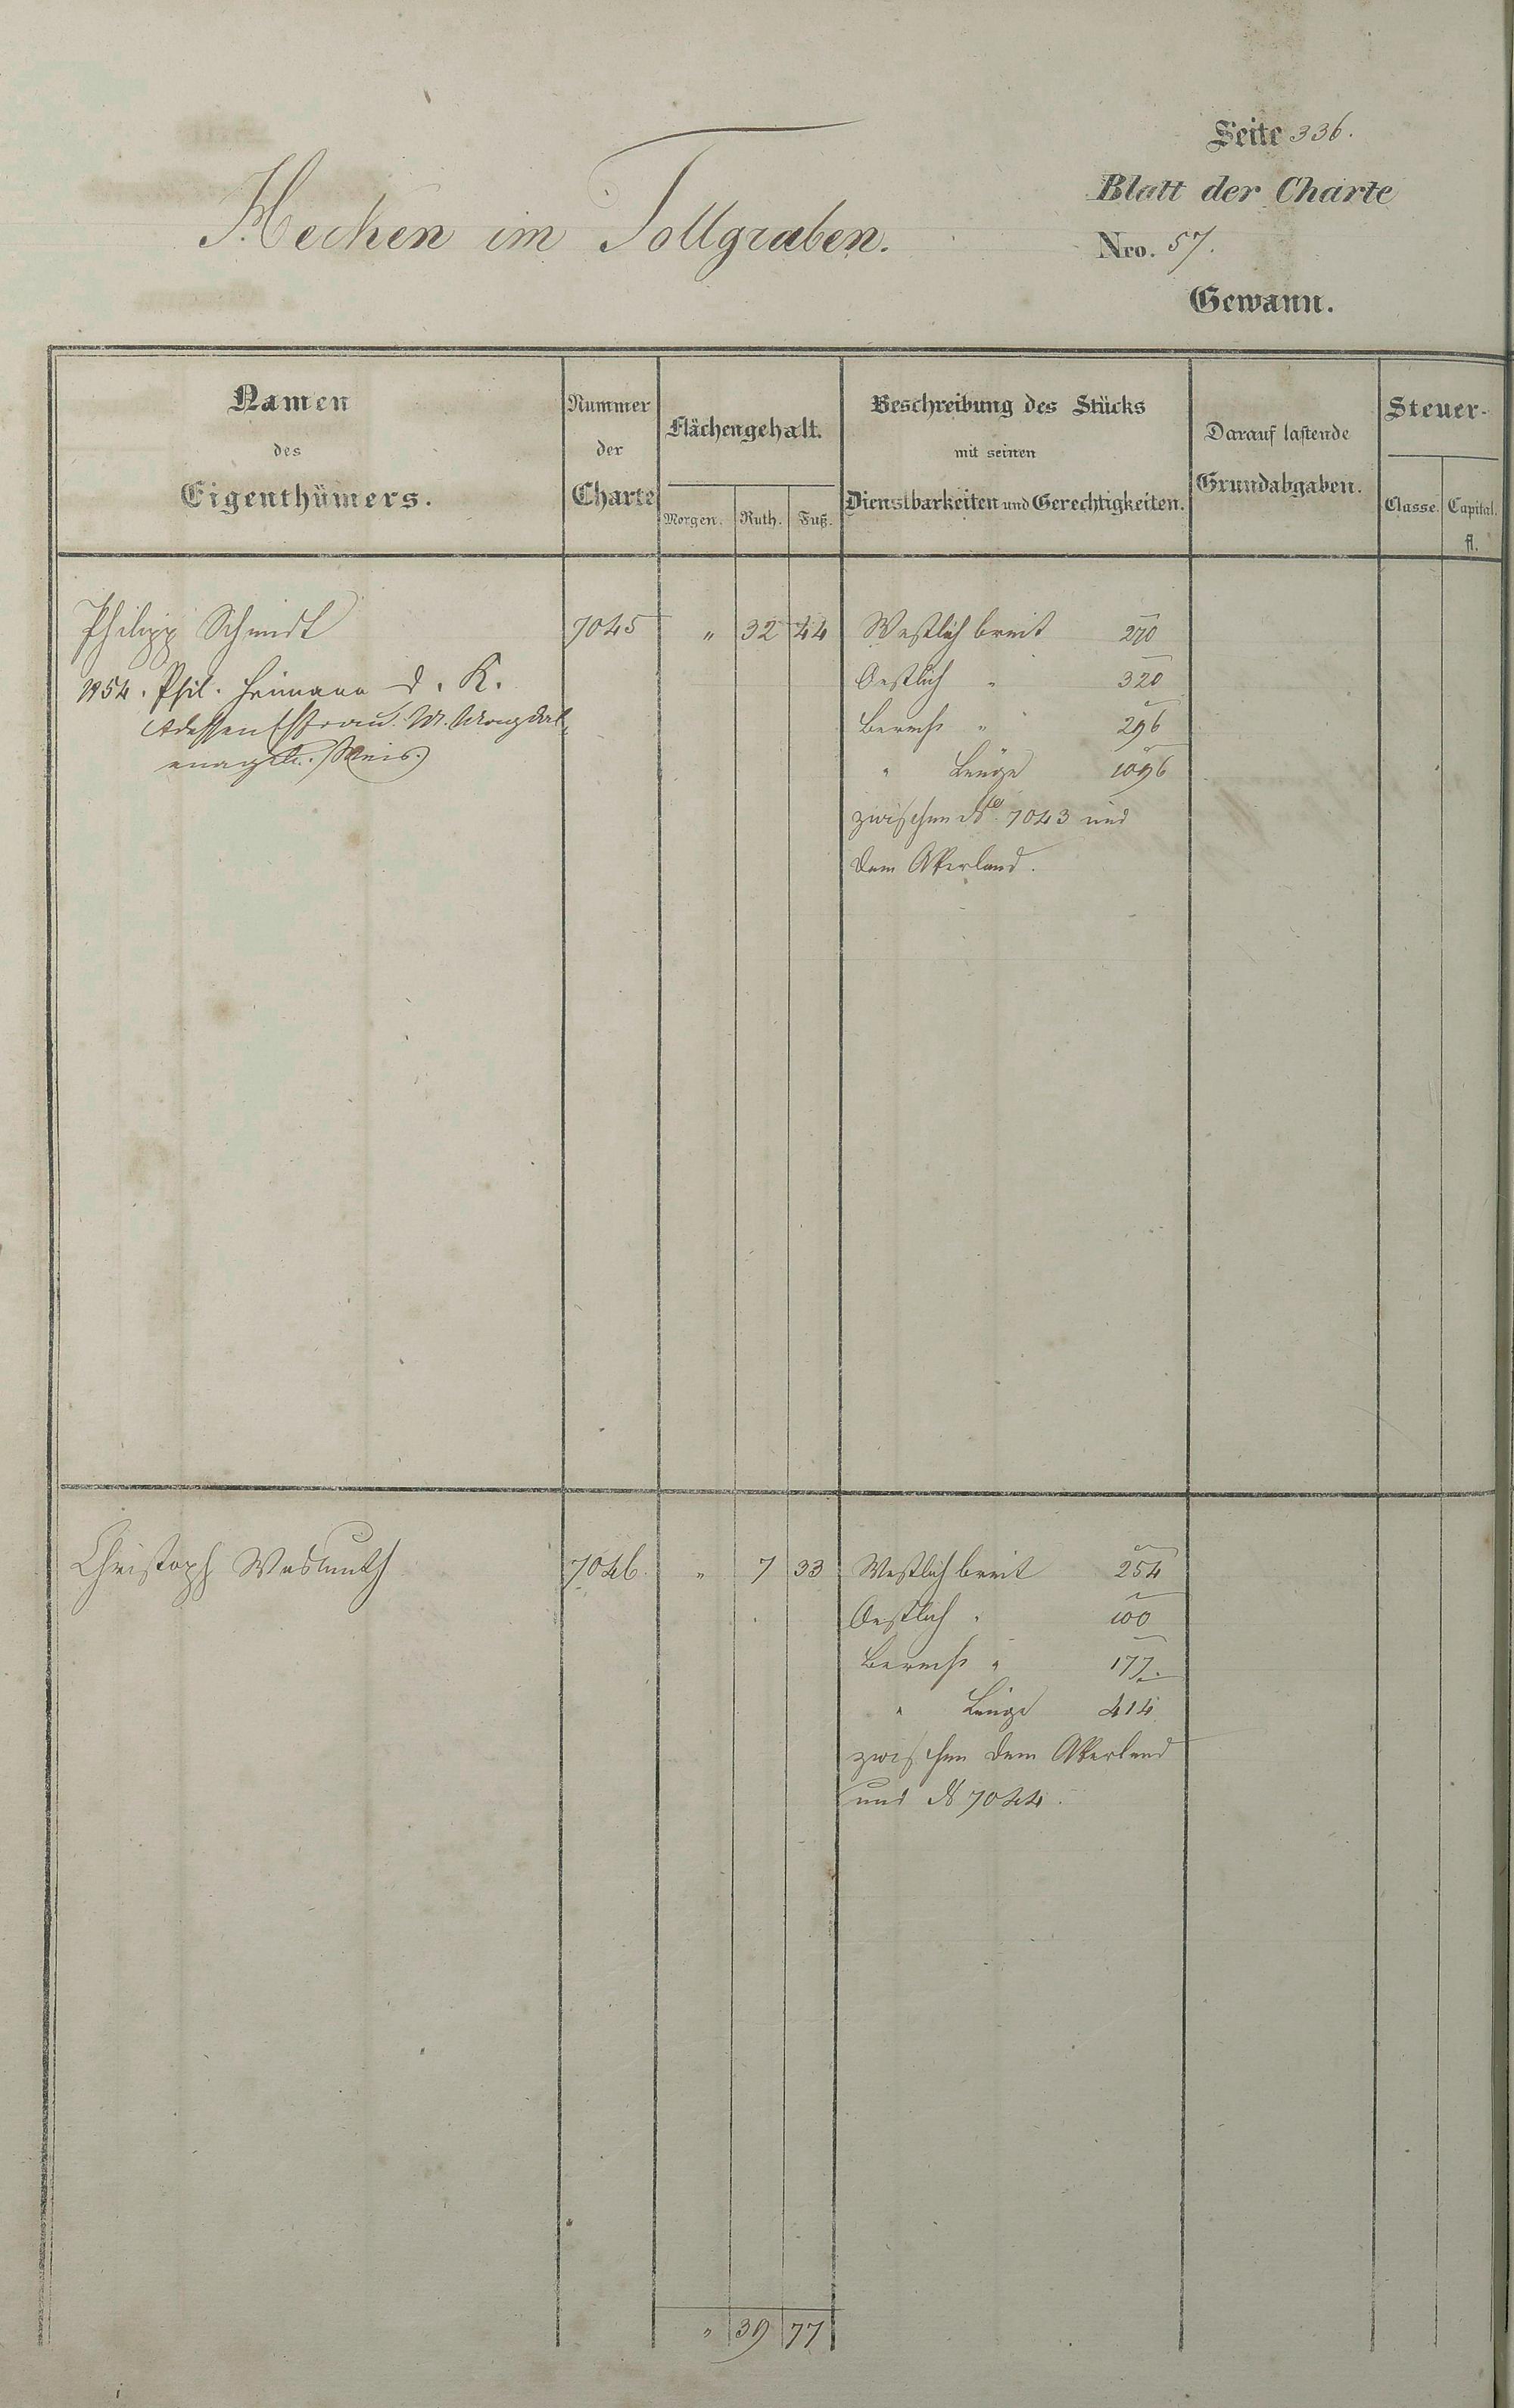 Seite 336.
Blatt der Charte
Hecken im Tollgraben.
Nro. 57.
Gewann.
Namen
des
Eigenthümers.
Nummer
der
Charte
Flächengehalt.
Morgen. Ruth. Fuß.
Beschreibung des Stücks
mit seinen
Dienstbarkeiten und Gerechtigkeiten.
Darauf lastende
Grundabgaben.
Steuer-
Classe. Capital.
fl.
Philipp Schmidt 7045 " 32 44 Westlich breit 270
1854. Phil. Heimann d. K. Oestlich " 320
Ehefrau M. Berech " 296
Weis. " Länge 1096
zwischen No 7043 und
dem Akerland.
Christoph Wasmuth 7046. " 7 33 Westlich breit 254
Oestlich " 100
Berech " 177.
" Länge 414
zwischen dem Akerland
und No 7044.
" 39 77